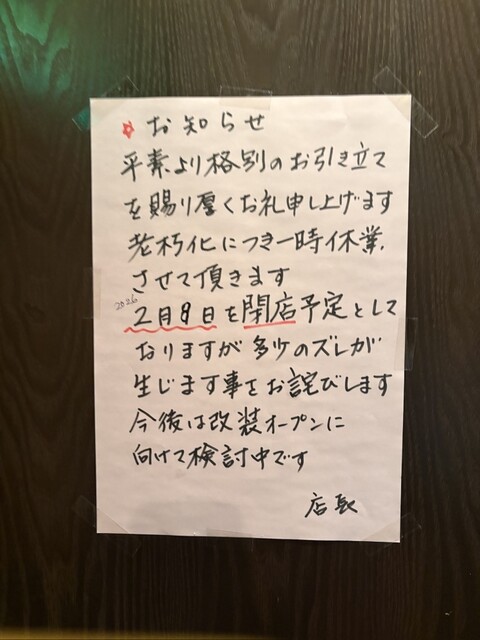 ☆お知らせ
平素より格別のお引き立て
を賜り厚くお礼申し上げます
老朽化につき一時休業
させて頂きます
2026
2月8日を閉店予定として
おりますが多少のズレが
生じます事をお詫びします
今後は改装オープンに
向けて検討中です
店長